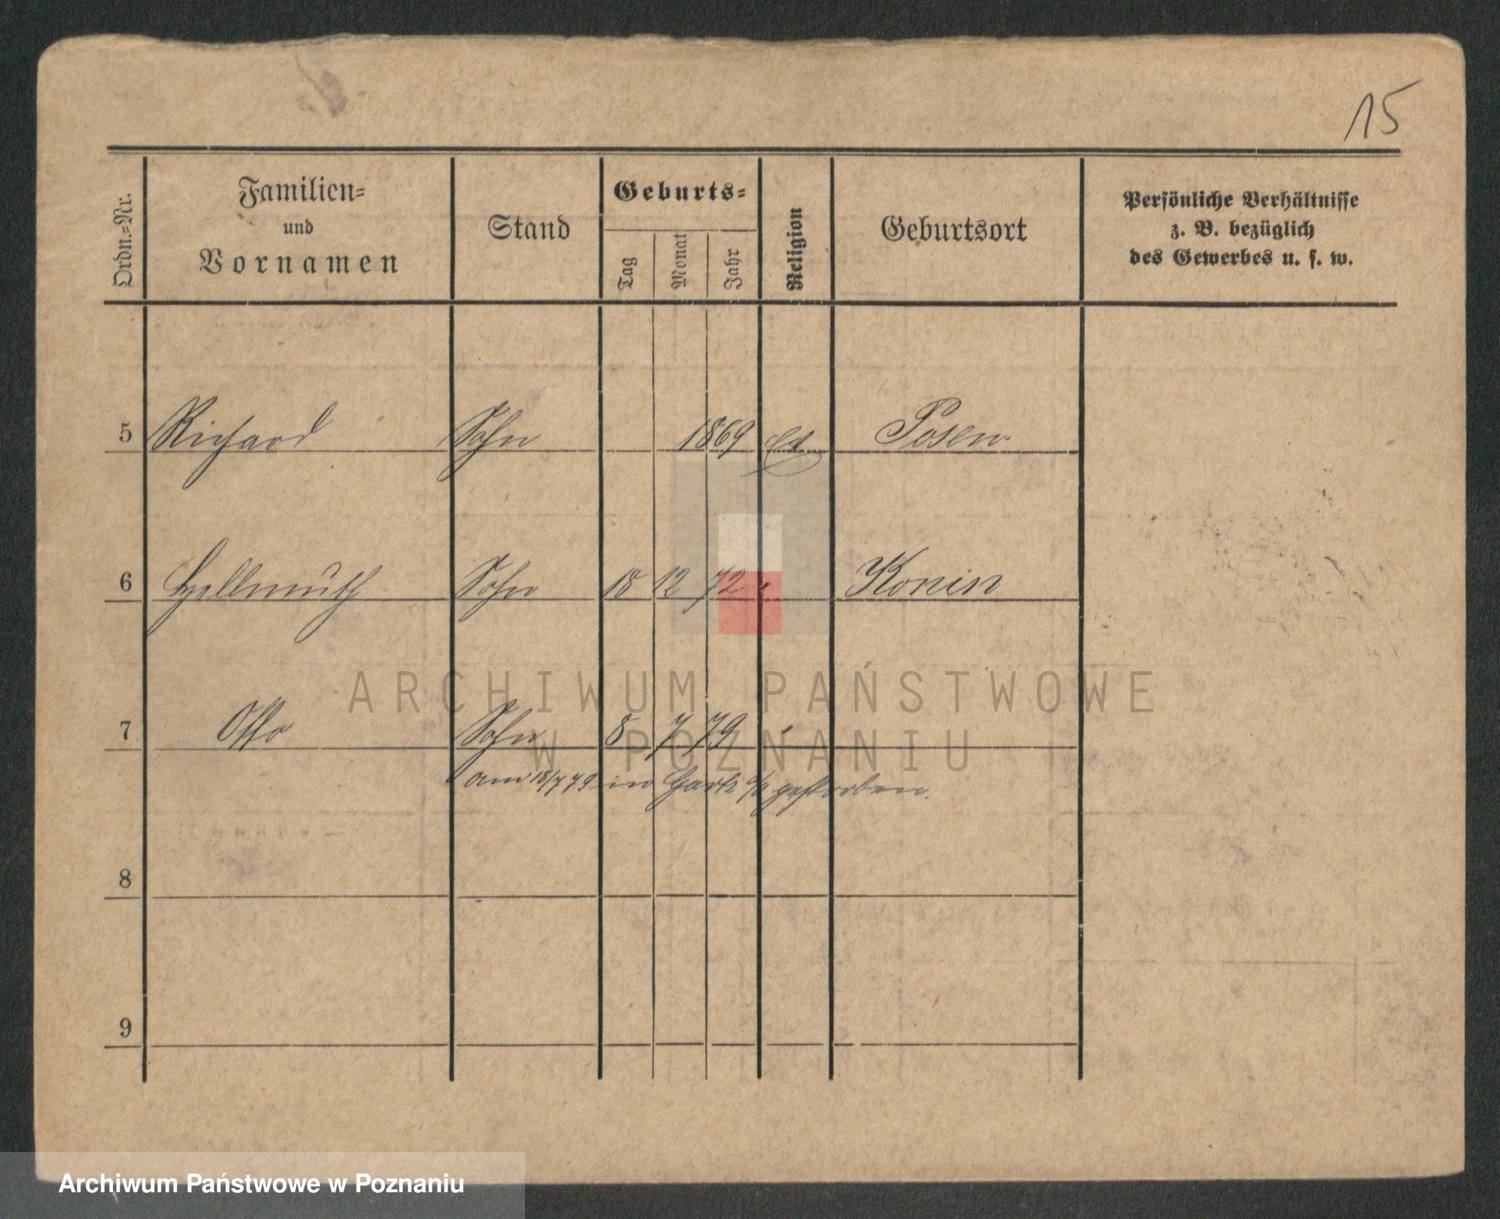 15
Ordn.-Nr.
Familien-
und
Vornamen
Stand
Geburts-
Tag
Monat
Jahr
Religion
Geburtsort
Persönliche Verhältnisse
z. B. bezüglich
des Gewerbes u. s. w.
5 Richard Sohn 1869 ev Posen
6 Hellmuth Sohn 18 12 72 Konin
ARCHIWUM PAŃSTWOWE
7 Otto Sohn 8 7 79
W POZNANIU
am 18/7 79 in gestorben.
8
9
Archiwum Państwowe w Poznaniu